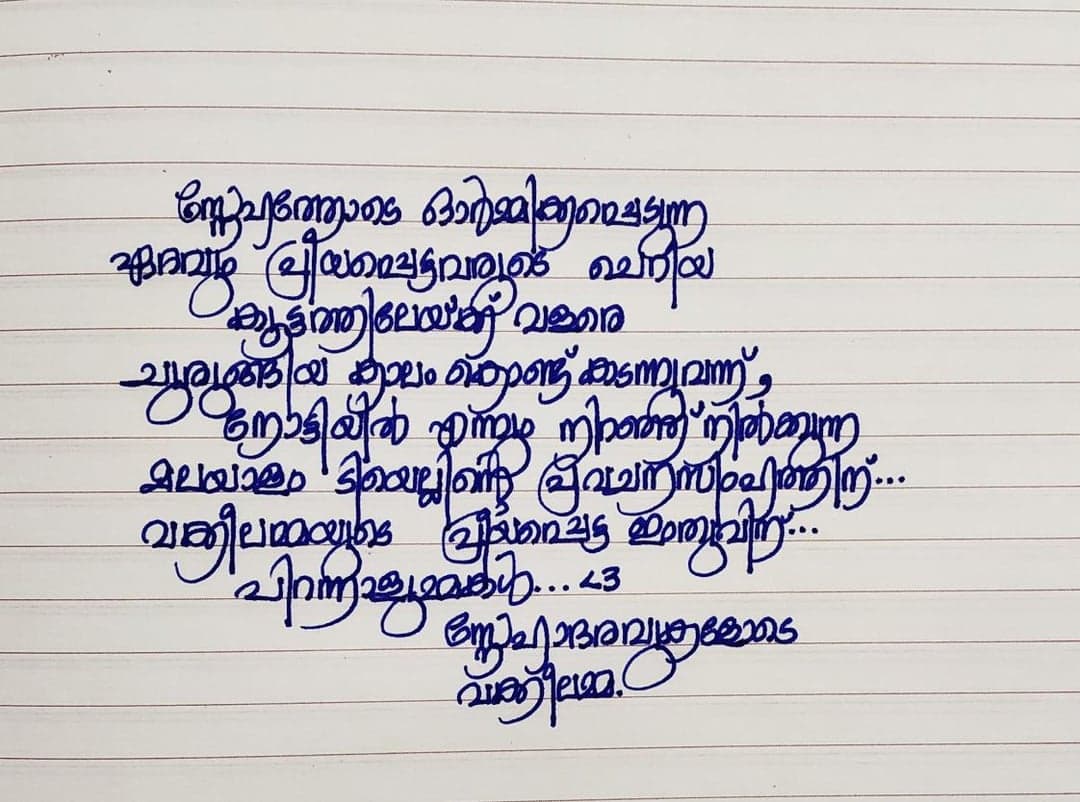 സ്നേഹത്തോടെ ഓർമ്മിക്കപ്പെടുന്ന
ഏറ്റവും പ്രീയപ്പെട്ടവരുടെ ചെറിയ
കൂട്ടത്തിലേയ്ക്ക് വളരെ
ചുരുങ്ങിയ കാലം കൊണ്ട് കടന്നുവന്ന്,
നോട്ടിയിൽ എന്നും നിറഞ്ഞ് നിൽക്കുന്ന
മലയാളം ടിയെല്ലിന്റെ പ്രവചനസിംഹത്തിന്...
വക്കീലമ്മയുടെ പ്രീയപ്പെട്ട ഇത്തുവിന്...
പിറന്നാളുമ്മകൾ... <3
സ്നേഹാദരവുകളോടെ
വക്കീലമ്മ.